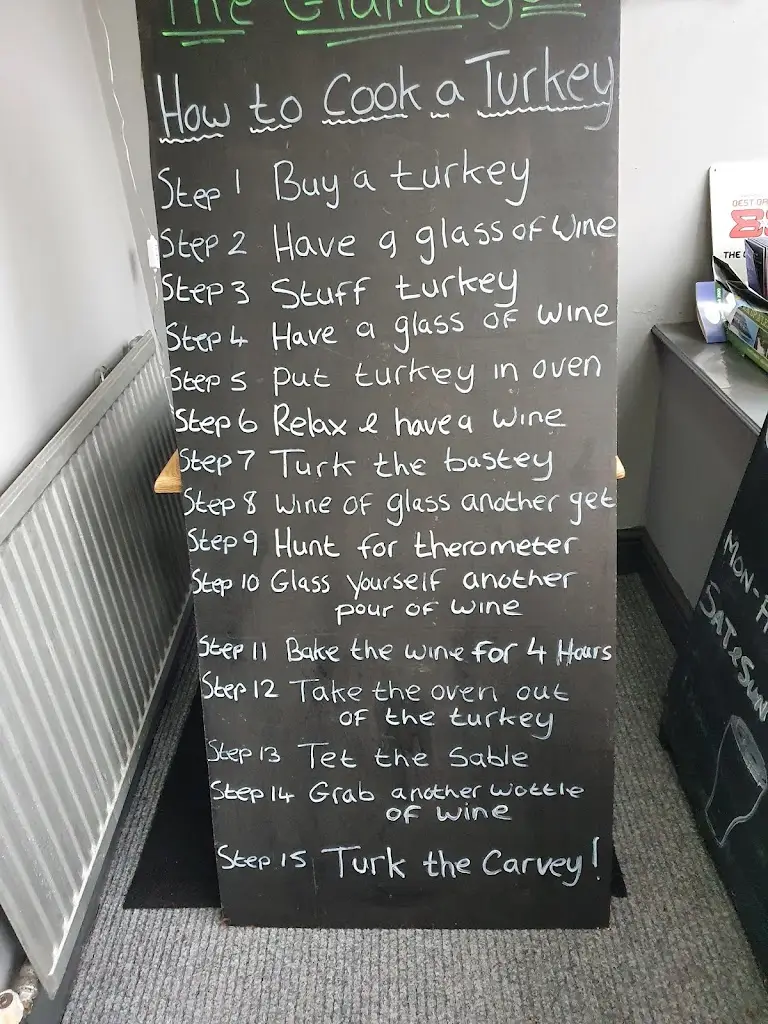 The
How to Cook a Turkey
Step 1 Buy a turkey
Step 2 Have a glass of wine
Step 3 Stuff turkey
Step 4 Have a glass of wine
Step 5 put turkey in oven
Step 6 Relax & have a wine
Step 7 Turk the bastey
Step 8 wine of glass another get
Step 9 Hunt for therometer
Step 10 Glass yourself another
pour of wine
Step 11 Bake the wine for 4 Hours
Step 12 Take the oven out
of the turkey
Step 13 Tet the Sable
Step 14 Grab another wottle
of wine
Step 15 Turk the Carvey!
BEST
THE
MON-
SAT & SUN